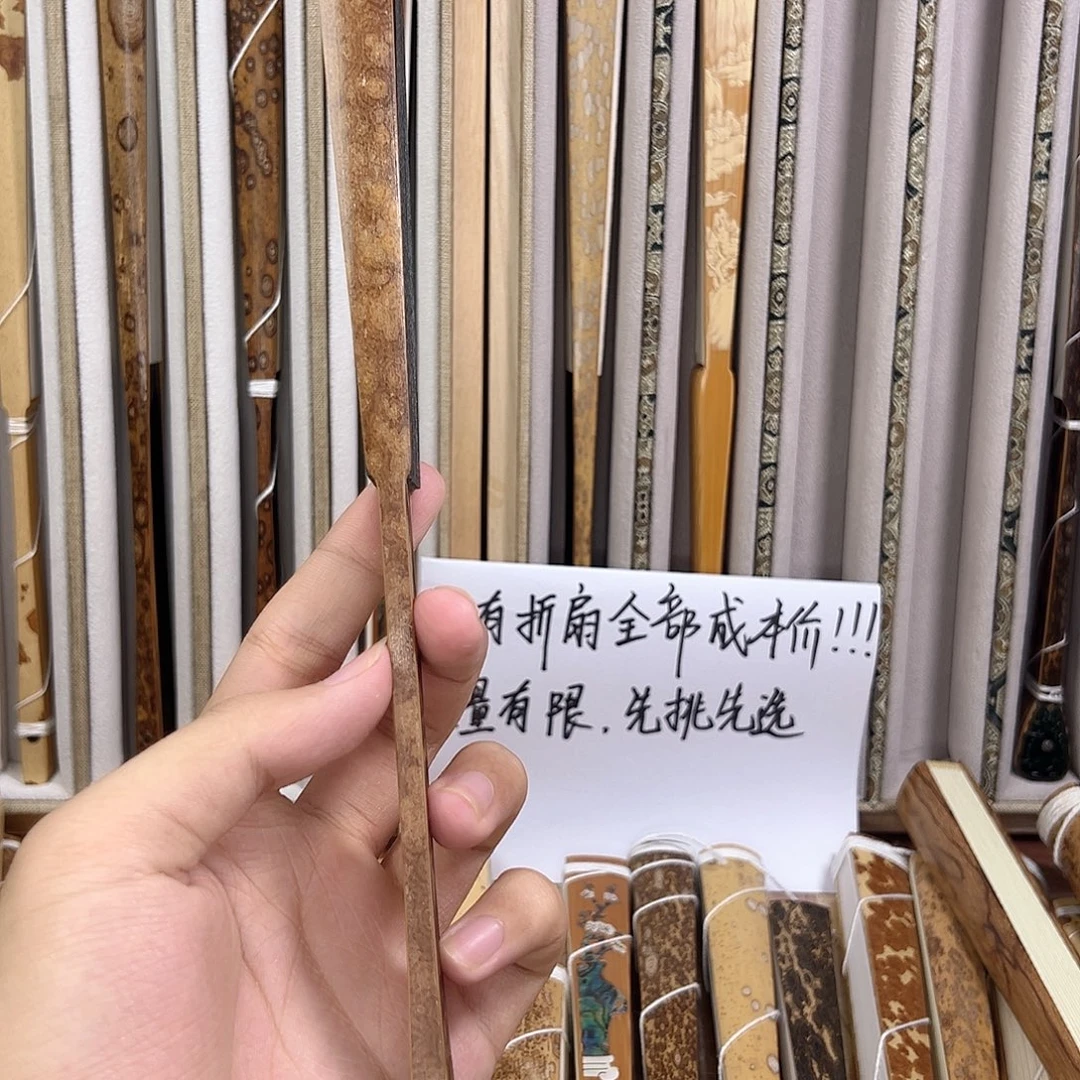 有折扇全部成本价!!!
量有限.先挑先选